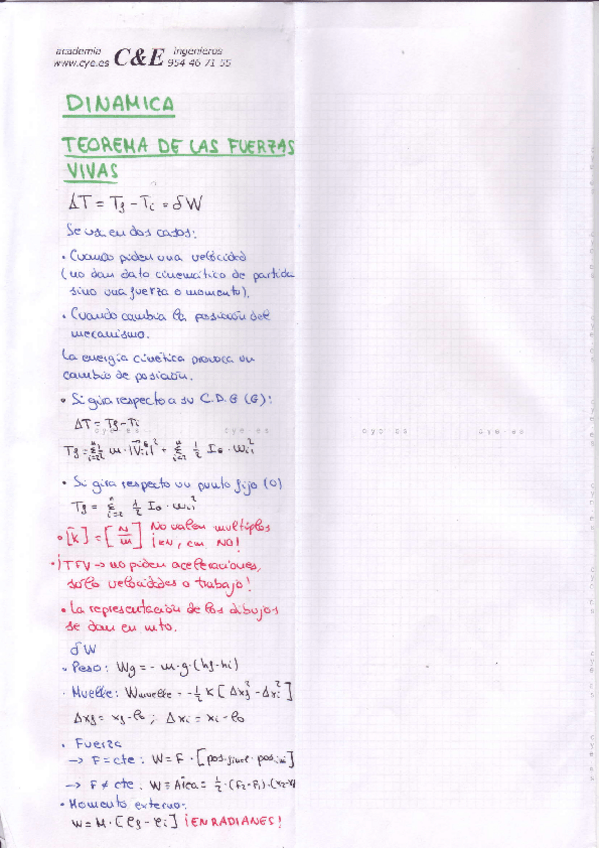 academia C&E ingenieros
www.cye.es 954 46 71 55
DINAMICA
TEOREMA DE LAS FUERZAS
VIVAS
ΔT = Tf - Ti = δW
Se usa en dos casos:
• Cuando piden una velocidad
(no dan dato cinemático de partida
sino una fuerza o momento).
• Cuando cambia la posición del
mecanismo.
La energía cinética provoca un
cambio de posición.
• Si gira respecto a su C.D.G (G):
ΔT = Tf - Ti
Tf = Σ i=2 n ½ m · |V i1 G|² + Σ i=2 n ½ IG · ωi1²
• Si gira respecto un punto fijo (O)
Tf = Σ i=2 n ½ Io · ωi1²
• [K] = [N/m] No valen multiplos
¡EN, cm NO!
• ¡TFV → no piden aceleraciones,
solo velocidades o trabajo!
• La representación de los dibujos
se dan en mto.
δW
• Peso: Wg = - m · g · (hf - hi)
• Muelle: Wmuelle = -½ K [Δxf² - Δxi²]
Δxf = xf - lo ; Δxi = xi - lo
• Fuerza
→ F = cte : W = F · [pos. final - pos. ini]
→ F ≠ cte : W = Área = ½ · (F2 - F1) ·
• Momento externo:
W = M · [φf - φi] ¡EN RADIANES!